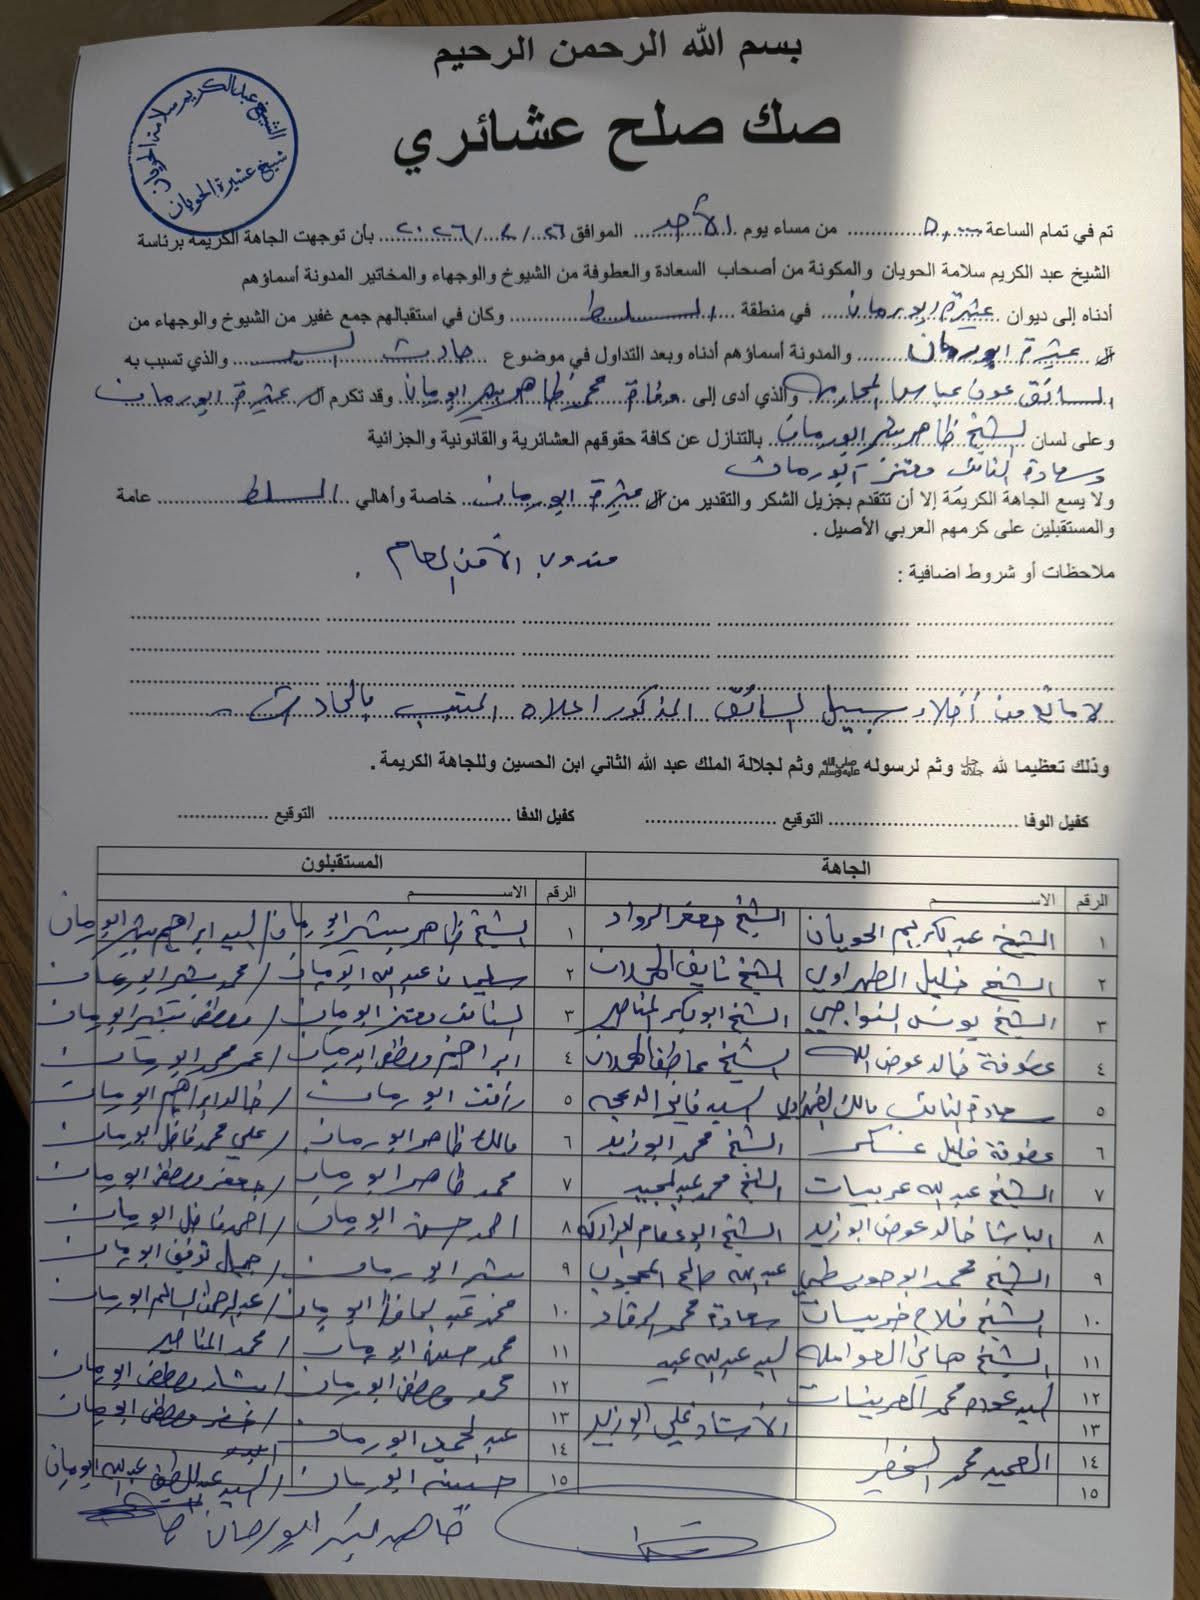 بسم الله الرحمن الرحيم
صك صلح عشائري
الشيخ عبدالكريم سلامة الحويان
شيخ عشيرة الحويان
تم في تمام الساعة ٥,٠٠ من مساء يوم الأحد الموافق ٢٦/ /٢٠٢٦ بأن توجهت الجاهة الكريمة برئاسة
الشيخ عبد الكريم سلامة الحويان والمكونة من أصحاب السعادة والعطوفة من الشيوخ والوجهاء والمخاتير المدونة أسماؤهم
أدناه إلى ديوان عشيرة ابو رمان في منطقة السلط وكان في استقبالهم جمع غفير من الشيوخ والوجهاء من
آل عشيرة ابو رمان والمدونة أسماؤهم أدناه وبعد التداول في موضوع حادث سير والذي تسبب به
السائق عون عباس المحارمه والذي أدى إلى وفاة محمد ظاهر بشير ابو رمان وقد تكرم آل عشيرة ابو رمان
وعلى لسان الشيخ ظاهر بشير ابو رمان بالتنازل عن كافة حقوقهم العشائرية والقانونية والجزائية
وسعادة النائب معتز ابو رمان
ولا يسع الجاهة الكريمة إلا أن تتقدم بجزيل الشكر والتقدير من آل عشيرة ابو رمان خاصة وأهالي السلط عامة
والمستقبلين على كرمهم العربي الأصيل .
ملاحظات أو شروط اضافية : مندوب الأمن العام .
لا مانع من أخلاء سبيل السائق المذكور اعلاه المتسبب بالحادث
وذلك تعظيما لله جل جلاله وثم لرسوله ﷺ وثم لجلالة الملك عبد الله الثاني ابن الحسين وللجاهة الكريمة .
كفيل الوفا التوقيع كفيل الدفا التوقيع
الجاهة المستقبلون
الرقم الاســـم الرقم الاســـم
١ الشيخ عبدالكريم الحويان الشيخ جعفر الرواد ١ الشيخ ظاهر بشير ابو رمان / السيد ابراهيم بشير ابو رمان
٢ الشيخ خليل الظهراوي الشيخ نايف الحمدان ٢ سليمان عبد الله ابو رمان / محمد بشير ابو رمان
٣ الشيخ يونس النواجي الشيخ ابو بكر المناصير ٣ النائب معتز ابو رمان / مصطفى بشير ابو رمان
٤ عطوفة خالد عوض الله الشيخ عاطف الحمدان ٤ ابراهيم مصطفى ابو رمان / عمر محمد ابو رمان
٥ سعادة النائب مالك الظهراوي السيد فايز الدعجه ٥ رأفت ابو رمان / خالد ابراهيم ابو رمان
٦ عطوفة خليل عسكر الشيخ محمد ابو زيد ٦ مالك ظاهر ابو رمان / علي محمد فاضل ابو رمان
٧ الشيخ عبد الله عربيات الشيخ محمد عبد المجيد ٧ محمد ظاهر ابو رمان / جعفر مصطفى ابو رمان
٨ الباشا خالد عوض ابو زيد الشيخ ابو عصام ٨ احمد حسن ابو رمان / احمد فاضل ابو رمان
٩ الشيخ محمد ابو حويطي عبد الله صالح ٩ بشير ابو رمان / جميل توفيق ابو رمان
١٠ الشيخ فلاح خريسات سعادة محمد الرقاد ١٠ محمد عبد الحافظ ابو رمان / عبد الرحمن السالم ابو رمان
١١ الشيخ هاني العوامله السيد عبد الله عبيد ١١ محمد حسن ابو رمان / محمد المناصير
١٢ السيد عوده محمد ١٢ محمد مصطفى ابو رمان / بشار مصطفى ابو رمان
١٣ الأستاذ علي ابو زيد ١٣ / خضر مصطفى ابو رمان
١٤ العميد محمد الخضير ١٤ عبد الحميد ابو رمان
١٥ ١٥ حسين ابو رمان / السيد عبد اللطيف عبد الله ابو رمان
ظاهر بشير ابو رمان